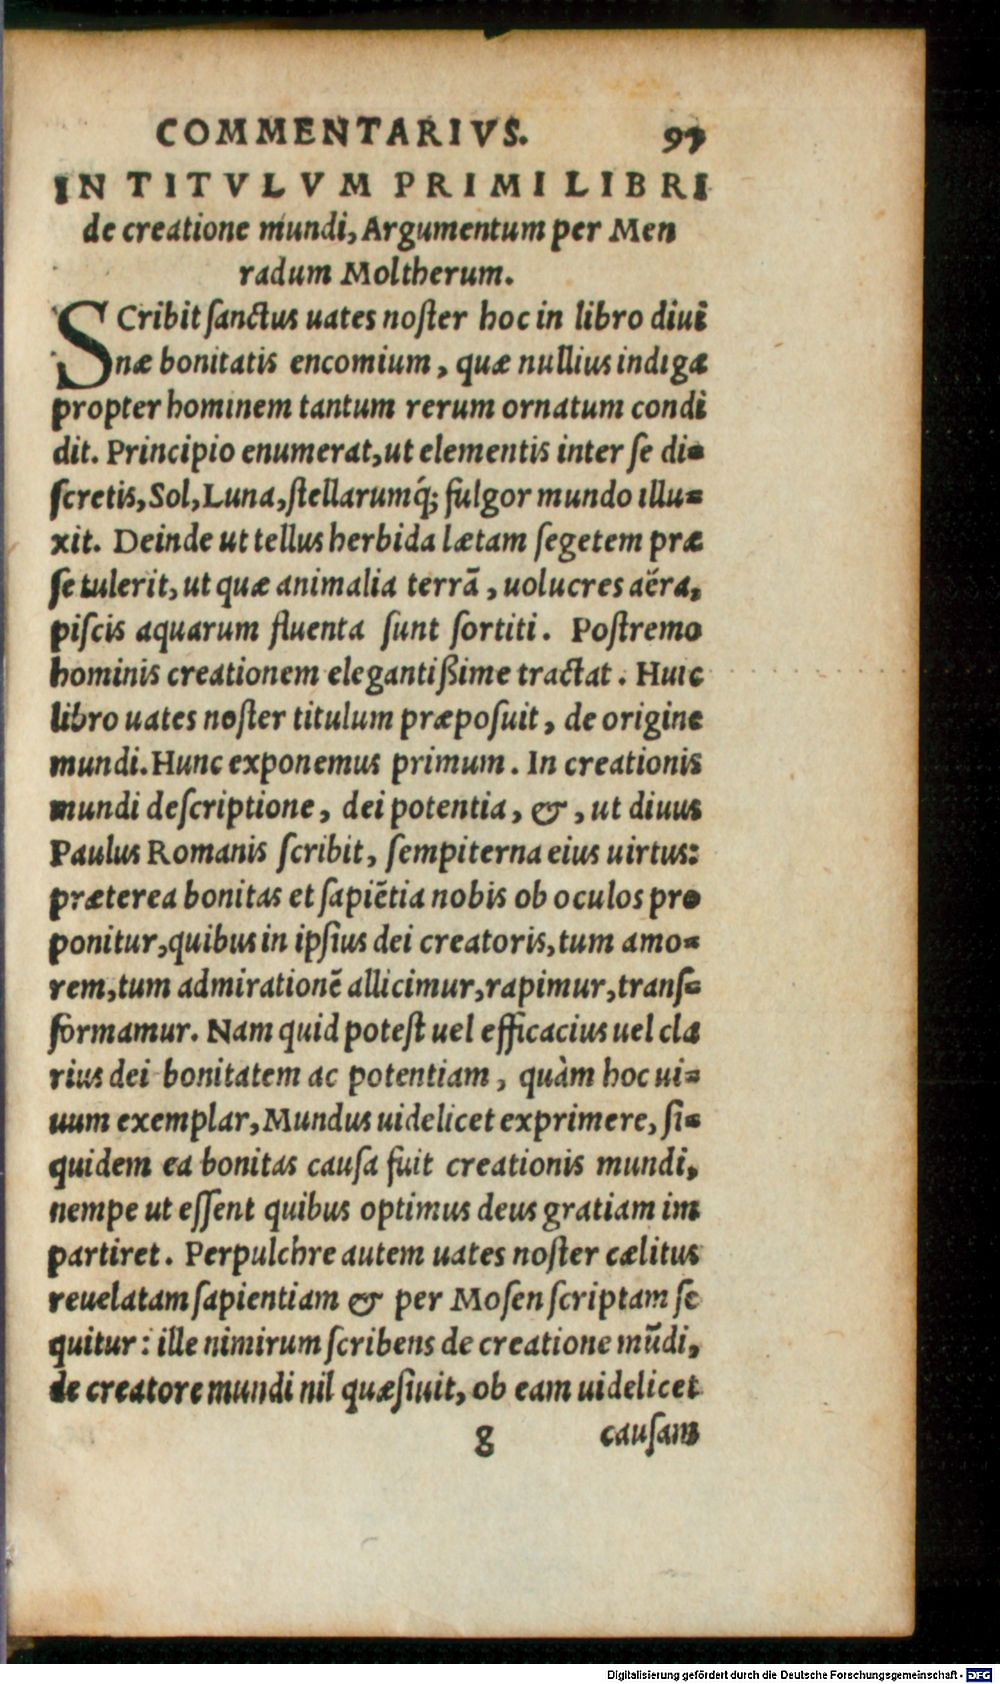 COMMENTARIVS. 97
IN TITVLVM PRIMI LIBRI
de creatione mundi, Argumentum per Men
radum Moltherum.
SCribit sanctus uates noster hoc in libro diui
næ bonitatis encomium, quæ nullius indiga
propter hominem tantum rerum ornatum condi
dit. Principio enumerat, ut elementis inter se di-
scretis, Sol, Luna, stellarumq́; fulgor mundo illu-
xit. Deinde ut tellus herbida lætam segetem præ
se tulerit, ut quæ animalia terrã, uolucres aëra,
piscis aquarum fluenta sunt sortiti. Postremo
hominis creationem elegantißime tractat. Huic
libro uates noster titulum præposuit, de origine
mundi. Hunc exponemus primum. In creationis
mundi descriptione, dei potentia, &, ut diuus
Paulus Romanis scribit, sempiterna eius uirtus:
præterea bonitas et sapiẽtia nobis ob oculos pro
ponitur, quibus in ipsius dei creatoris, tum amo-
rem, tum admirationẽ allicimur, rapimur, trans-
formamur. Nam quid potest uel efficacius uel cla
rius dei bonitatem ac potentiam, quàm hoc ui-
uum exemplar, Mundus uidelicet exprimere, si-
quidem ea bonitas causa fuit creationis mundi,
nempe ut essent quibus optimus deus gratiam im
partiret. Perpulchre autem uates noster cælitus
reuelatam sapientiam & per Mosen scriptam se
quitur: ille nimirum scribens de creatione mũdi,
de creatore mundi nil quæsiuit, ob eam uidelicet
g causam
Digitalisierung gefördert durch die Deutsche Forschungsgemeinschaft - DFG